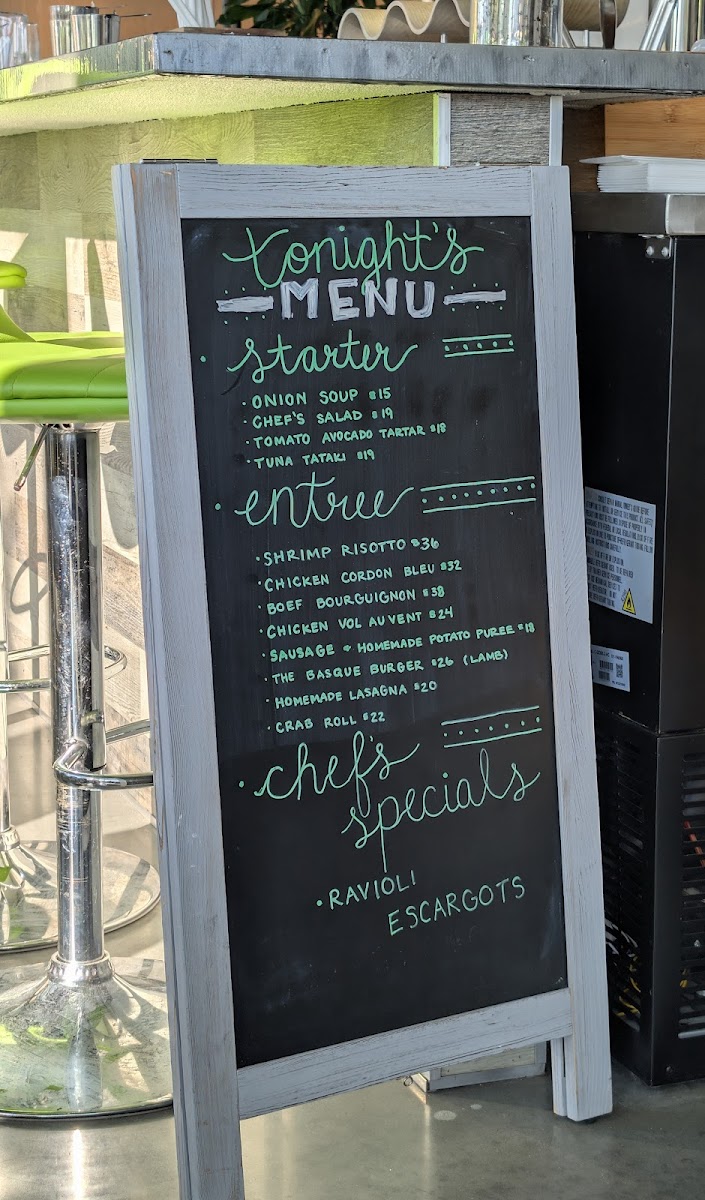 tonight's
MENU
starter
· ONION SOUP $15
· CHEF'S SALAD $19
· TOMATO AVOCADO TARTAR $18
· TUNA TATAKI $19
· entree
· SHRIMP RISOTTO $36
· CHICKEN CORDON BLEU $32
· BOEF BOURGUIGNON $38
· CHICKEN VOL AU VENT $24
· SAUSAGE & HOMEMADE POTATO PUREE $18
· THE BASQUE BURGER $26 (LAMB)
· HOMEMADE LASAGNA $20
· CRAB ROLL $22
· chef's
specials
· RAVIOLI
ESCARGOTS